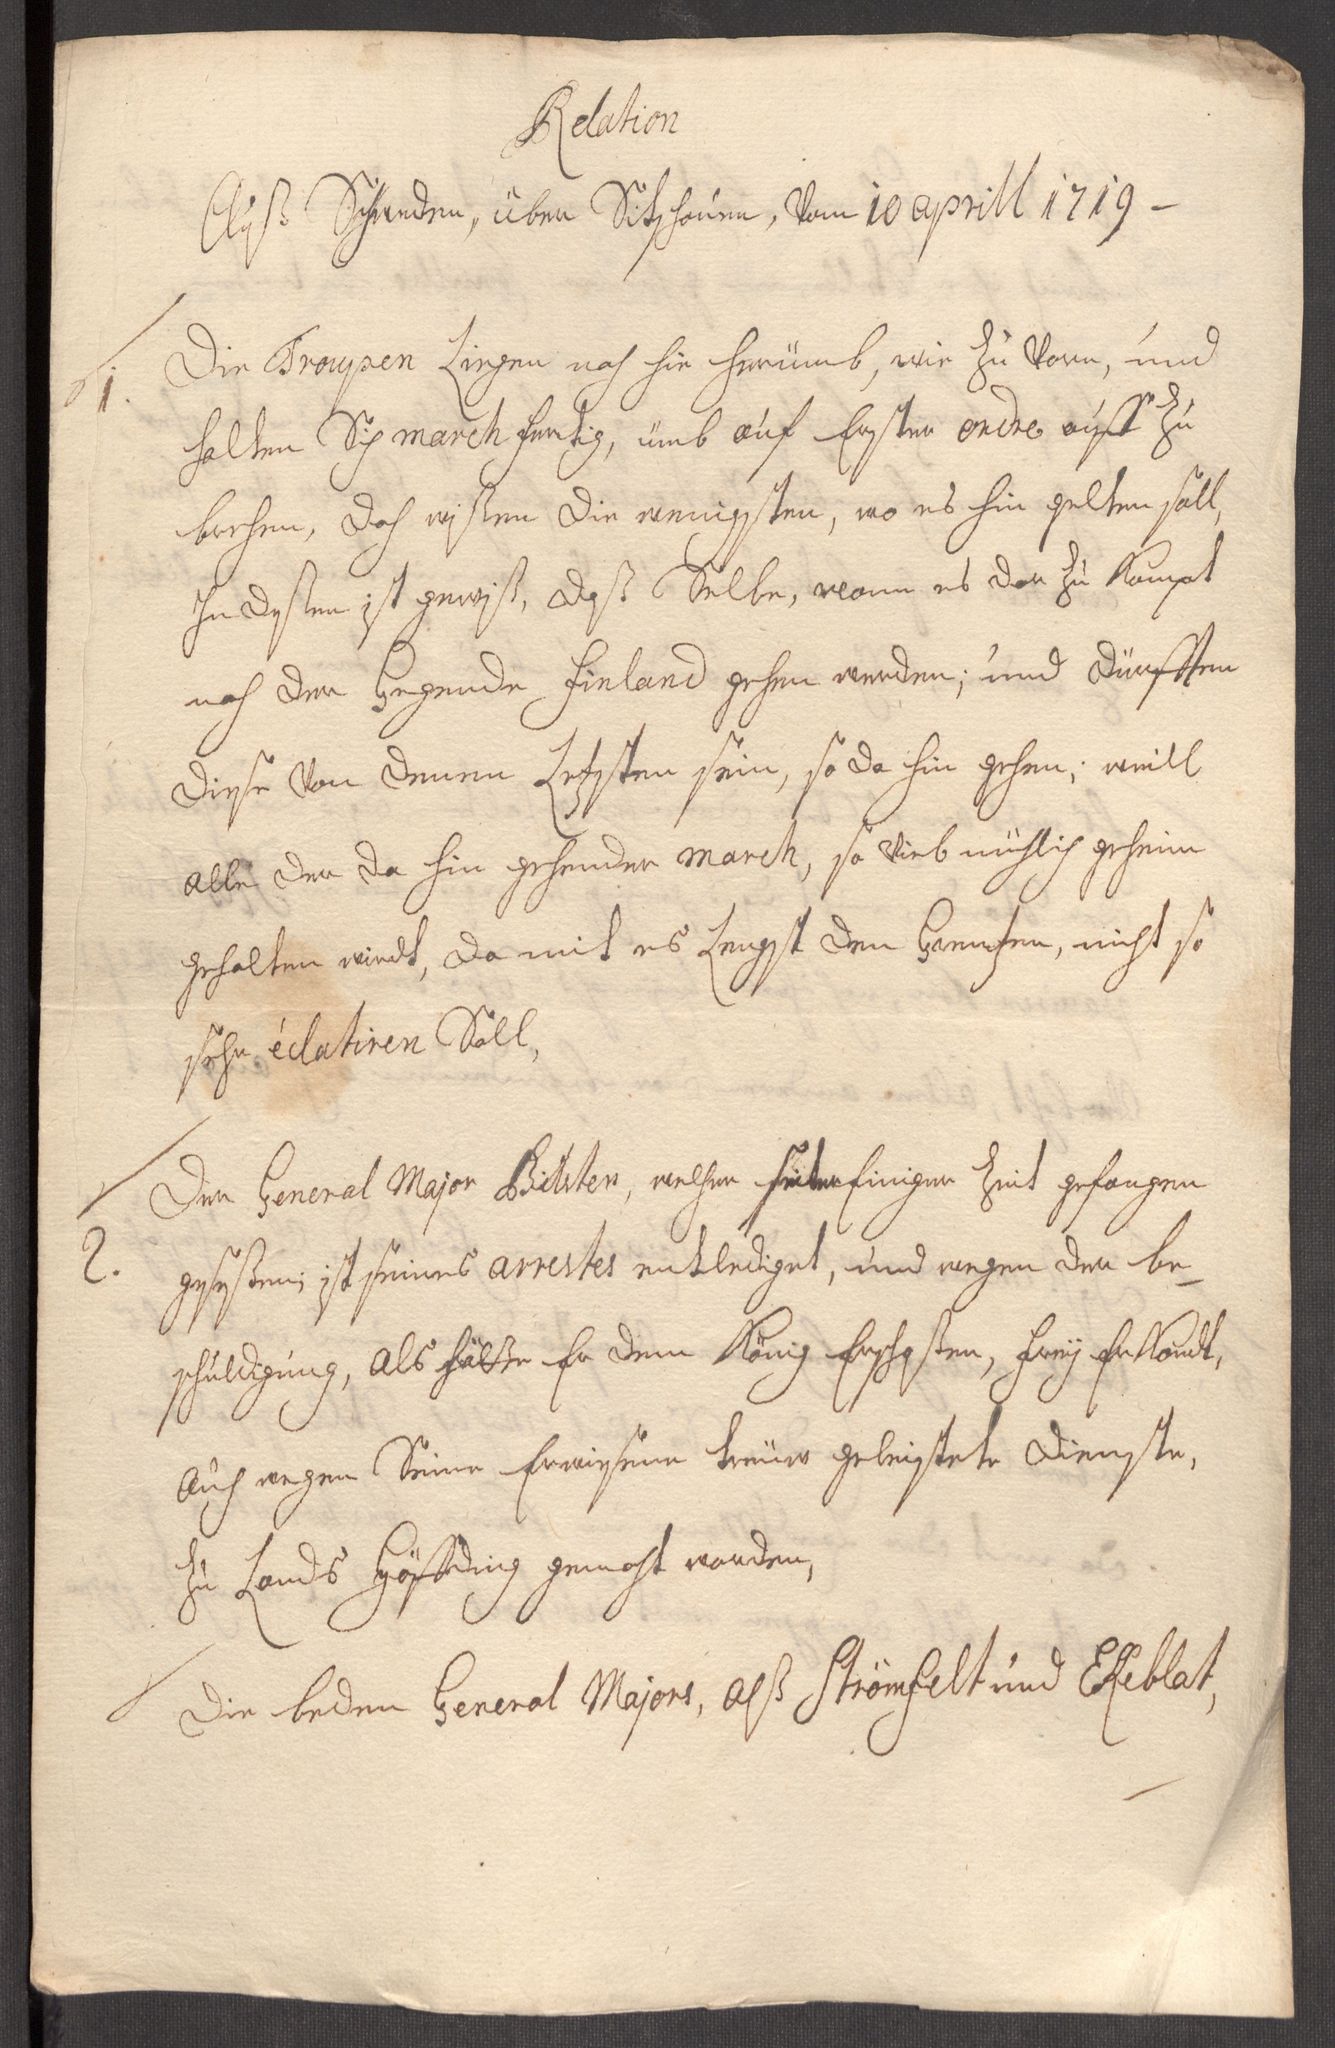 Relation
Auß Schweden, über Sitzhauen, Vom 10 aprill 1719 –
1. Die Troupen Liegen noch hie herümb, wie zu Vorn, und
halten Sich march fertig, ümb auf Erster ordre auff zu
brechen, doch wißen die wenigsten, wo es hin gelten soll,
In deßen ist gewiß, daß Selbe, wann es dar zu Kompt
nach der Gegende Finland gehen werden; und dürfften
diese Von denen Letzsten sein, so da hin gehen; weill
alle der da hin gehender march, so Vieb müchlich geheim
gehalten wirdt, da mit es Lengst den Grentzen, nicht so
sehr éclatiren Soll,
2. Der General Major , welcher seiter Einiger Zeit gefangen
geseßen; ist seines arrestes entlediget, und wegen der be-
schuldigung, als hätte Er dem König Erschoßen, freÿ Er Kandt,
auch wegen Seine Erwiesene treüw geleistete Dienste,
zu Lands Höffding gemacht worden,
Die beden General Majors, alß Strömfelt und Ekeblat,